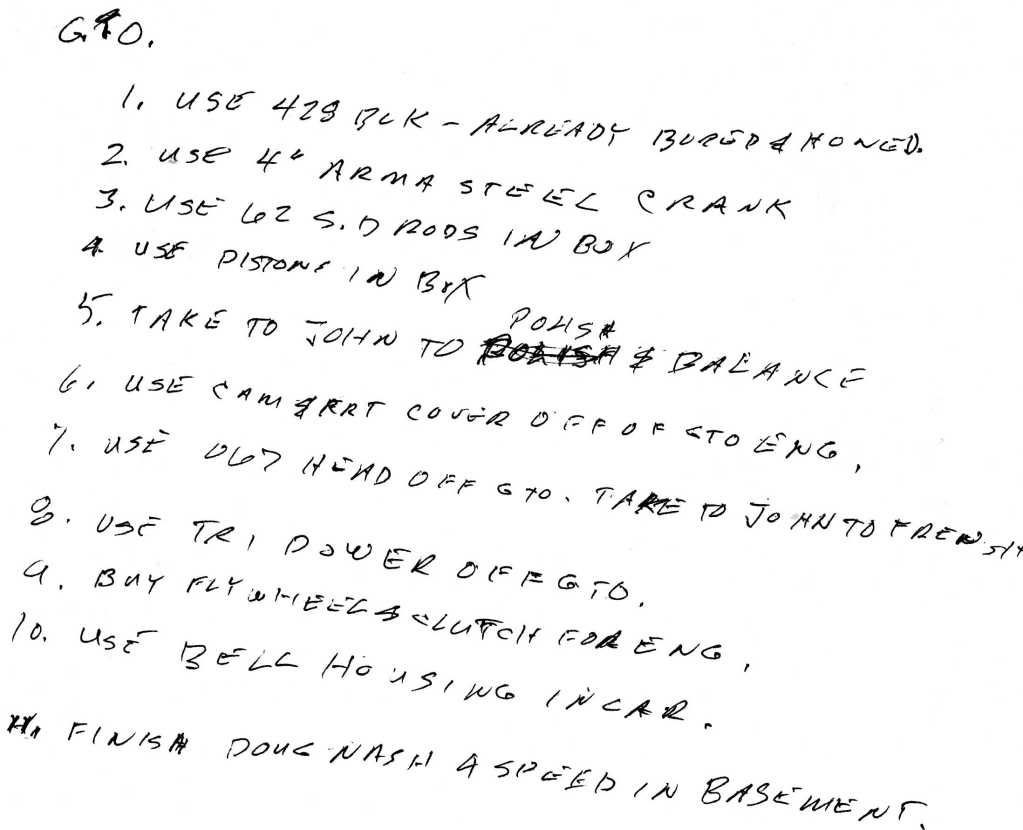 GTO.
1. USE 428 BLK - ALREADY BORED & HONED.
2. USE 4" ARMA STEEL CRANK
3. USE 62 S.D RODS IN BOX
4. USE PISTONS IN BOX
5. TAKE TO JOHN TO POLISH & BALANCE
6. USE CAM & FRT COVER OFF OF GTO ENG.
7. USE 067 HEAD OFF GTO. TAKE TO JOHN TO
8. USE TRI POWER OFF GTO.
9. BUY FLYWHEEL & CLUTCH FOR ENG.
10. USE BELL HOUSING IN CAR.
11. FINISH DOUG NASH 4 SPEED IN BASEMENT.